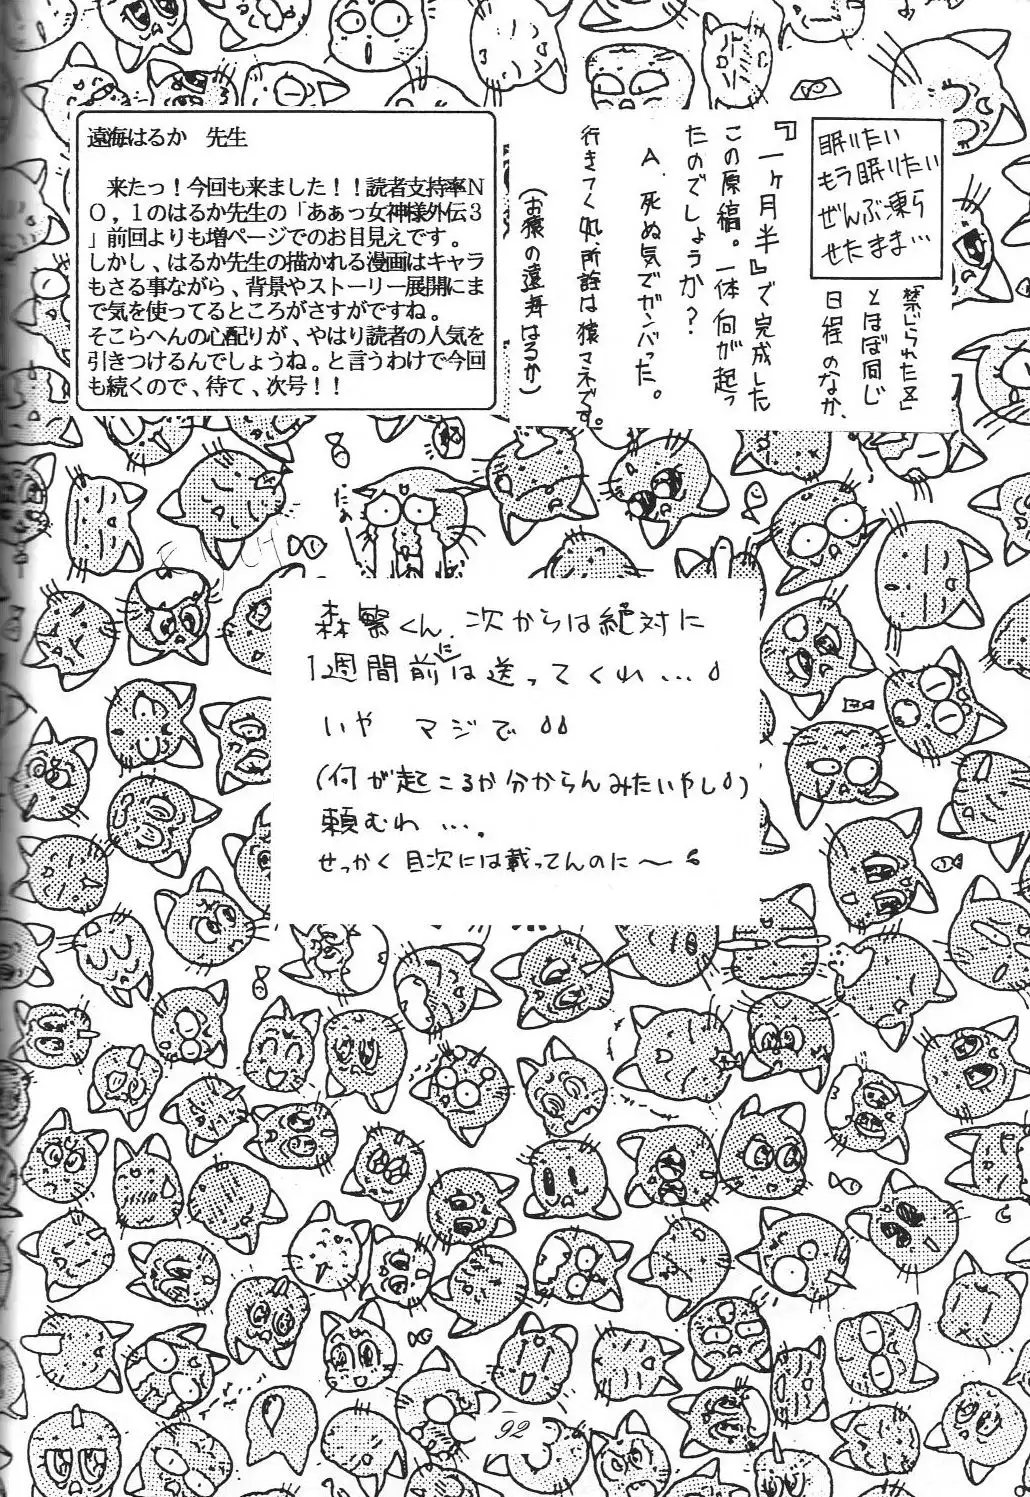 遠海はるか　先生
　来たっ！今回も来ました！！読者支持率N
O，1のはるか先生の「あぁっ女神様外伝3
」前回よりも増ページでのお目見えです。
しかし、はるか先生の描かれる漫画はキャラ
もさる事ながら、背景やストーリー展開にま
で気を使ってるところがさすがですね。
そこらへんの心配りが、やはり読者の人気を
引きつけるんでしょうね。と言うわけで今回
も続くので、待て、次号！！
眠りたい
もう眠りたい
ぜんぶ凍ら
せたまま…
「禁じられた区」
とほぼ同じ
日程のなか、
『一ヶ月半』で完成した
この原稿。一体何が起っ
たのでしょうか？
A．死ぬ気でガンバった。
行きてく処所詮は猿マネです。
（お猿の遠海はるか）
森繁くん、次からは絶対に
1週間前には送ってくれ…
いや マジで
（何が起こるか分からんみたいやし）
頼むわ…。
せっかく目次には載ってんのに〜
92